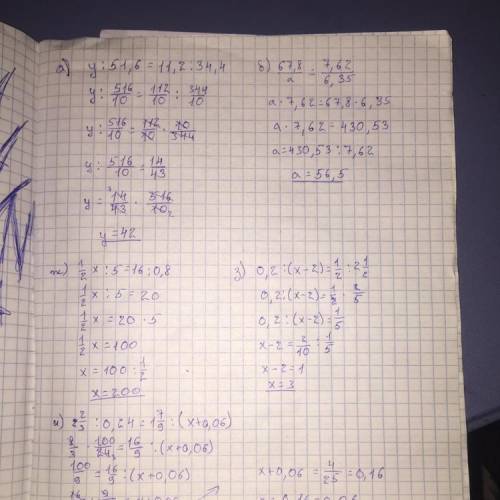 а) y : 51,6 = 11,2 : 34,4
y : 516/10 = 112/10 : 344/10
y : 516/10 = 112/10 · 10/344
y : 516/10 = 14/43
y = 14/43 · 516/10
y = 42
б) 67,8/a = 7,62/6,35
a · 7,62 = 67,8 · 6,35
a · 7,62 = 430,53
a = 430,53 : 7,62
a = 56,5
ж) 1/2 x : 5 = 16 : 0,8
1/2 x : 5 = 20
1/2 x = 20 · 5
1/2 x = 100
x = 100 : 1/2
x = 200
з) 0,2 : (x-2) = 1/2 : 2 1/2
0,2 : (x-2) = 1/2 · 2/5
0,2 : (x-2) = 1/5
x-2 = 2/10 : 1/5
x-2 = 1
x = 3
и) 2 2/3 : 0,24 = 1 7/9 : (x+0,06)
8/3 · 100/24 = 16/9 : (x+0,06)
100/9 = 16/9 : (x+0,06)
x+0,06 = 4/25 = 0,16